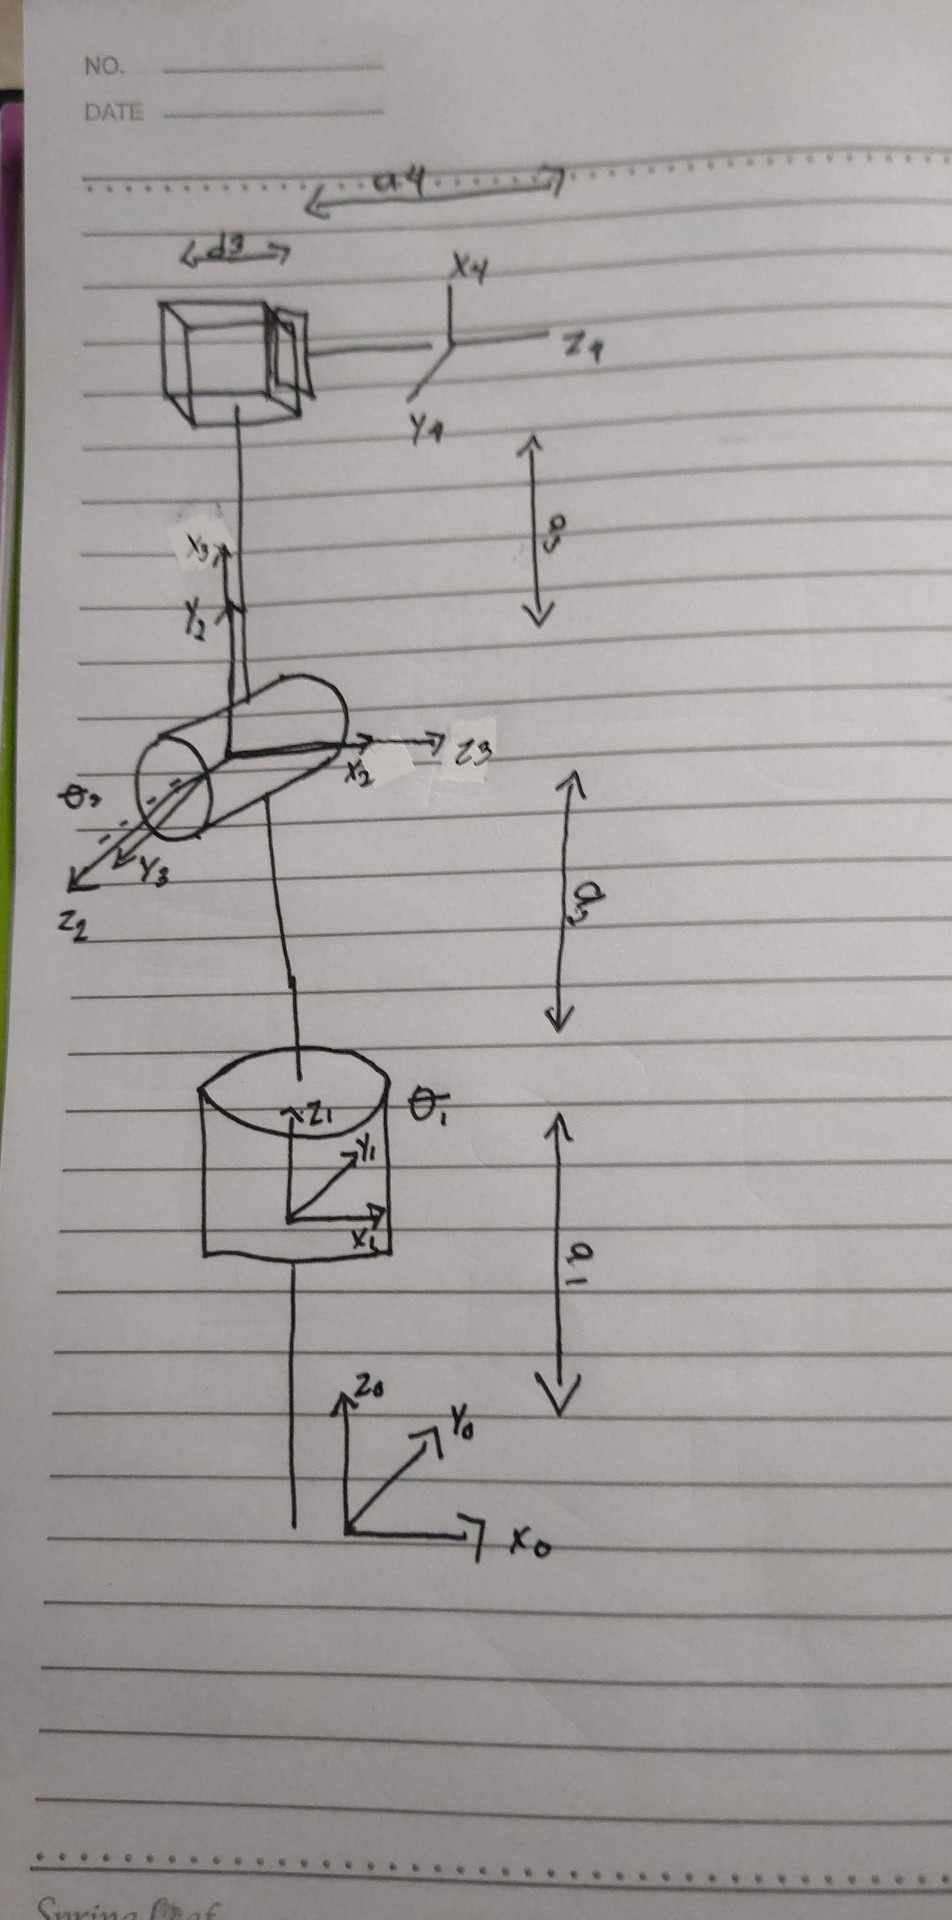 NO.
DATE
a4
d3
X4
Z4
Y4
a3
X3
Y2
Z3
X2
θ2
Y3
Z2
a2
θ1
Z1
Y1
X1
a1
Z0
Y0
X0